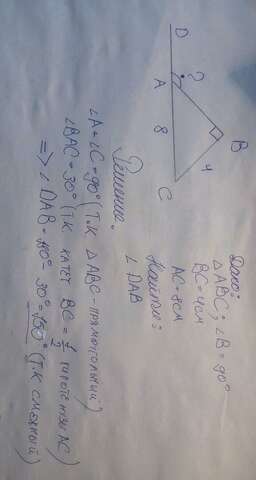 D
A
?
B
8
4
C
Дано:
△ABC; ∠B = 90°
BC = 4см
AC = 8см
Найти:
∠ DAB
Решение:
∠A + ∠C = 90° (т.к △ABC - прямоугольный)
∠BAC = 30° (т.к катет BC = 1/2 гипотенузы AC)
=> ∠ DAB = 180° - 30° = 150° (т.к смежный)